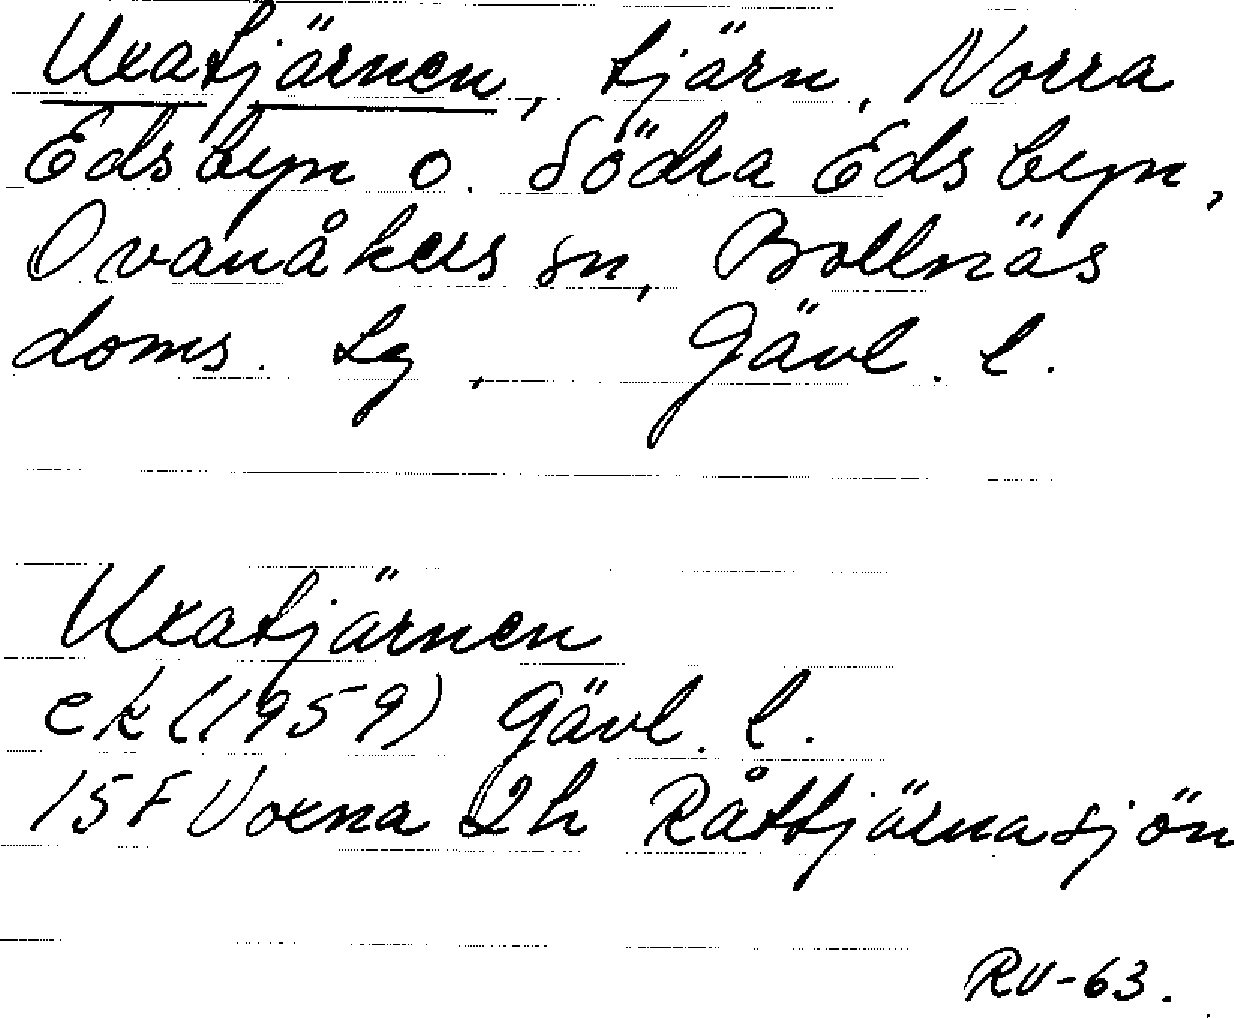 Uxatjärnen, tjärn, Norra
Edsbyn o. Södra Edsbyn,
Ovanåkers sn, Bollnäs
doms. lg, Gävl. l.
Uxatjärnen
ek (1959) Gävl. l.
15F Voxna 2h Råttjärnasjön
RV-63.